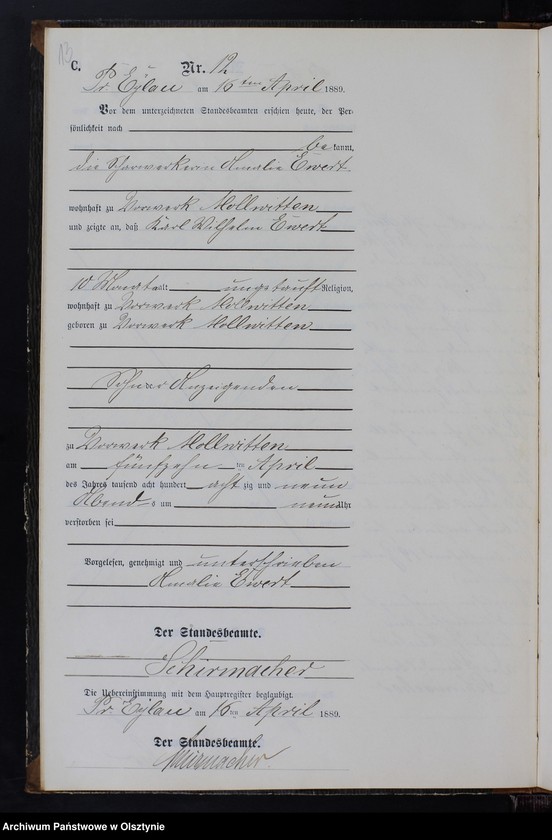 13
C.
Nr. 12
Pr Eylau am 16ten April 1889.
Vor dem unterzeichneten Standesbeamten erschien heute, der Per-
sönlichkeit nach
be kannt,
die Scharwerkerin Amalie Ewert
wohnhaft zu Vorwerk Mollwitten
und zeigte an, daß Karl Wilhelm Ewert
10 Monate alt ungetauft Religion,
wohnhaft zu Vorwerk Mollwitten
geboren zu Vorwerk Mollwitten
Sohn der Anzeigenden
zu Vorwerk Mollwitten
am fünfzehn ten April
des Jahres tausend acht hundert acht zig und neun
Abends um neun Uhr
verstorben sei
Vorgelesen, genehmigt und unterschrieben
Amalie Ewert
Der Standesbeamte.
Schirmacher
Die Uebereinstimmung mit dem Hauptregister beglaubigt.
Pr Eylau am 16ten April 1889.
Der Standesbeamte.
Schirmacher
Archiwum Państwowe w Olsztynie